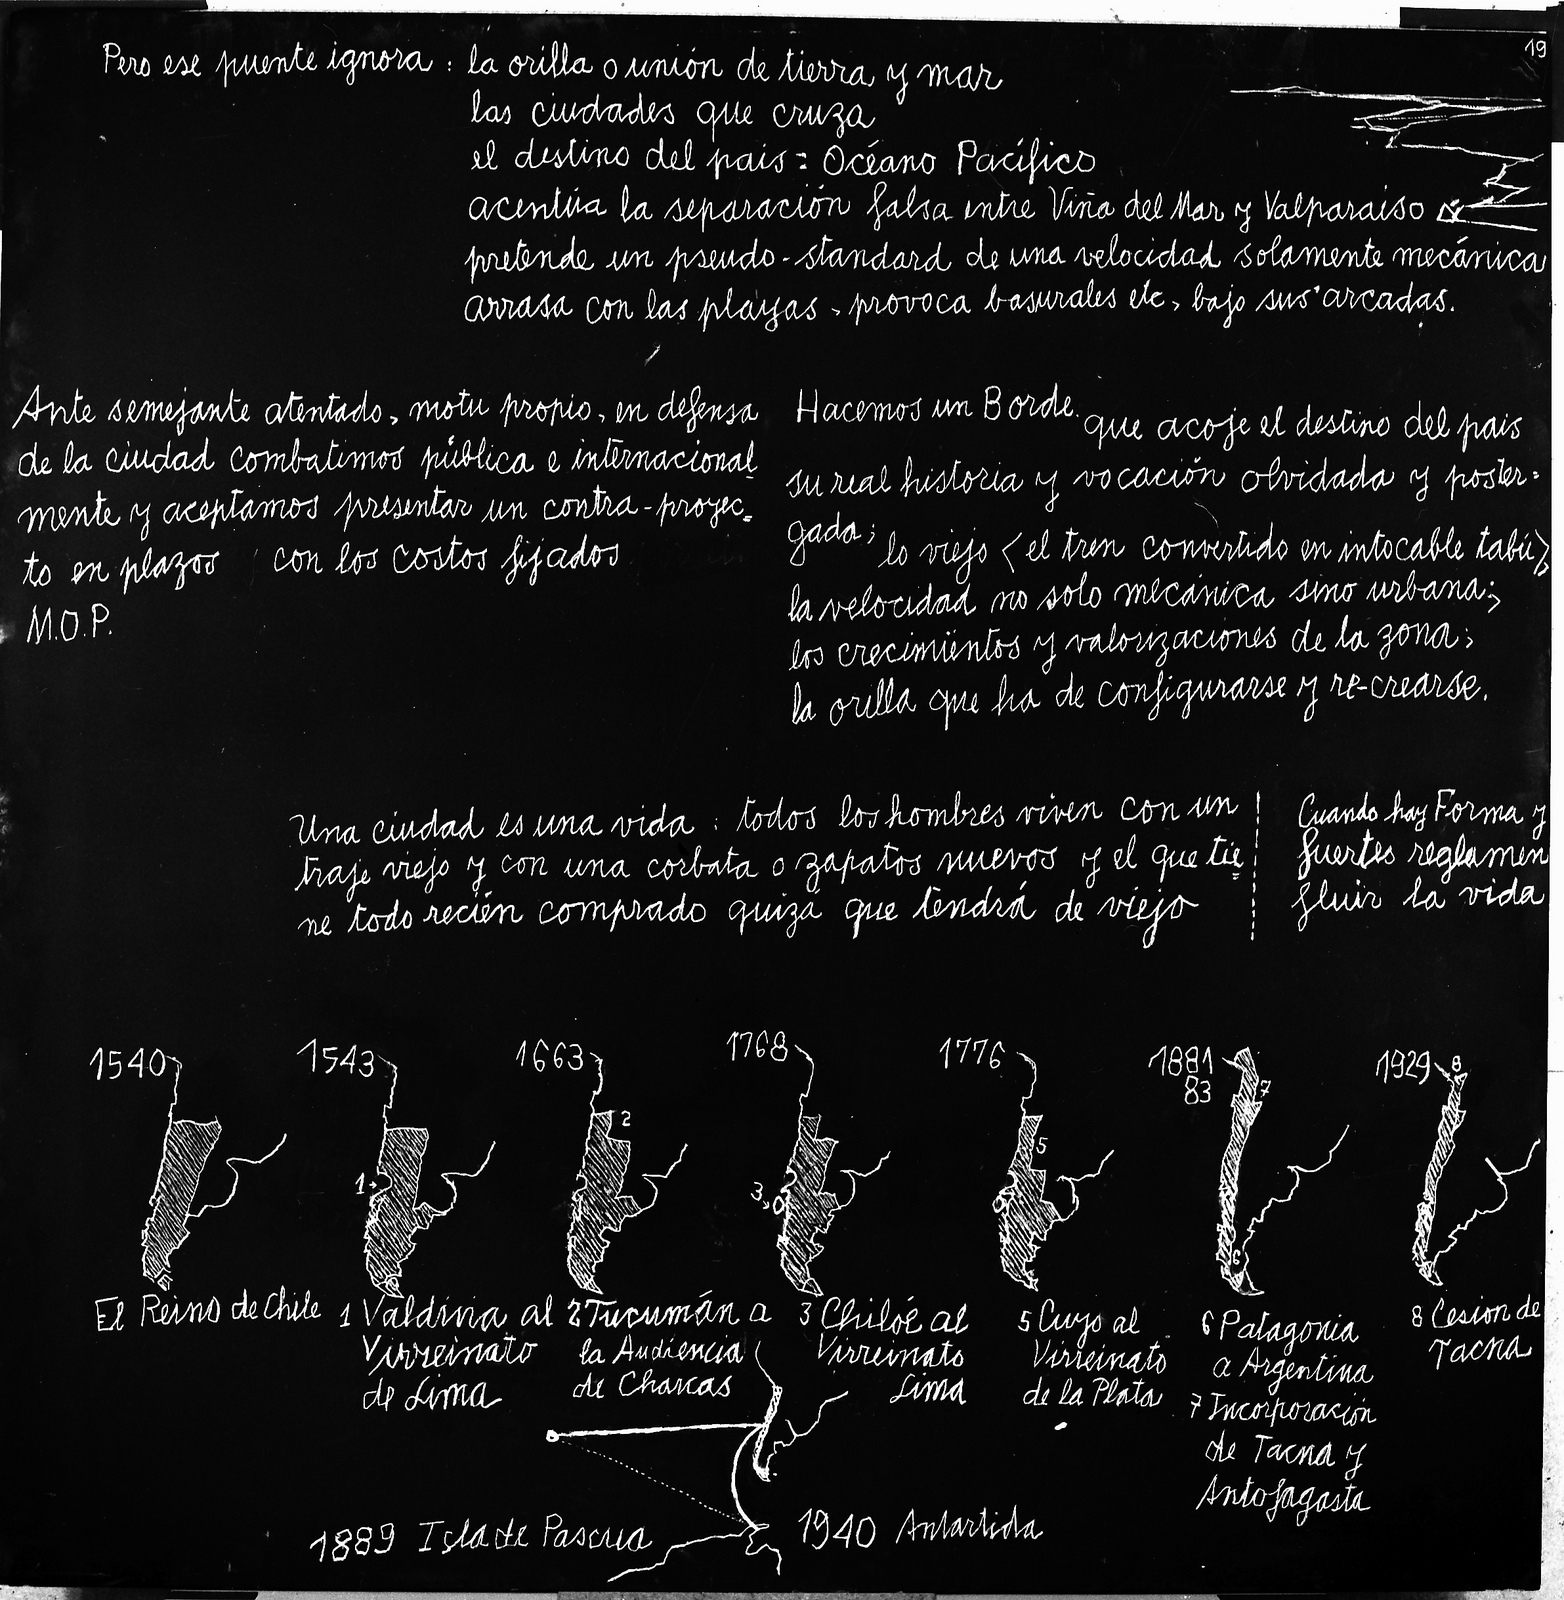 19
Pero ese puente ignora : la orilla o unión de tierra y mar
las ciudades que cruza
el destino del pais : Océano Pacífico
acentúa la separación falsa entre Viña del Mar y Valparaiso
pretende un pseudo-standard de una velocidad solamente mecánica
arrasa con las playas, provoca basurales etc, bajo sus arcadas.
Ante semejante atentado, motu propio, en defensa
de la ciudad combatimos pública e internacional
mente y aceptamos presentar un contra-proyec=
to en plazos con los costos fijados
M.O.P.
Hacemos un Borde. que acoje el destino del pais
su real historia y vocación olvidada y poster=
gada; lo viejo <el tren convertido en intocable tabú>
la velocidad no solo mecánica sino urbana;
los crecimientos y valorizaciones de la zona;
la orilla que ha de configurarse y re-crearse.
Una ciudad es una vida : todos los hombres viven con un
traje viejo y con una corbata o zapatos nuevos y el que tie=
ne todo recién comprado quiza que tendrá de viejo
Cuando hay Forma y
fuertes reglamen
fluir la vida
1540
1543
1663
1768
1776
1881
83
1929
8
7
2
5
1
3
6
El Reino de Chile
1 Valdivia al
Virreinato
de Lima
2 Tucumán a
la Audiencia
de Charcas
3 Chiloé al
Virreinato
Lima
5 Cuyo al
Virreinato
de la Plata
6 Patagonia
a Argentina
7 Incorporación
de Tacna y
Antofagasta
8 Cesion de
Tacna
1889 Isla de Pascua
1940 Antartida